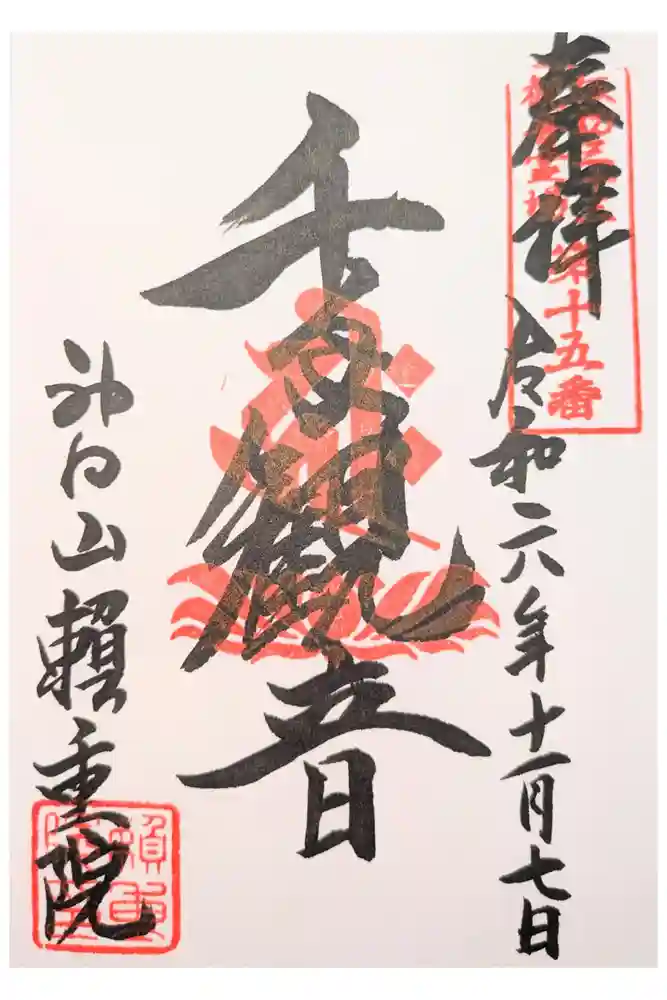 奉拝
第十五番
令和六年十一月七日
千手観音
神向山頼重院
頼重